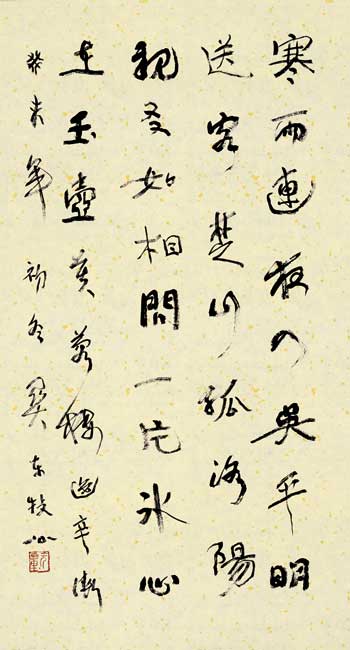 寒雨連夜入吳平明
送客楚山孤洛陽
親友如相問一片冰心
在玉壺芙蓉樓送辛漸
癸未年初冬